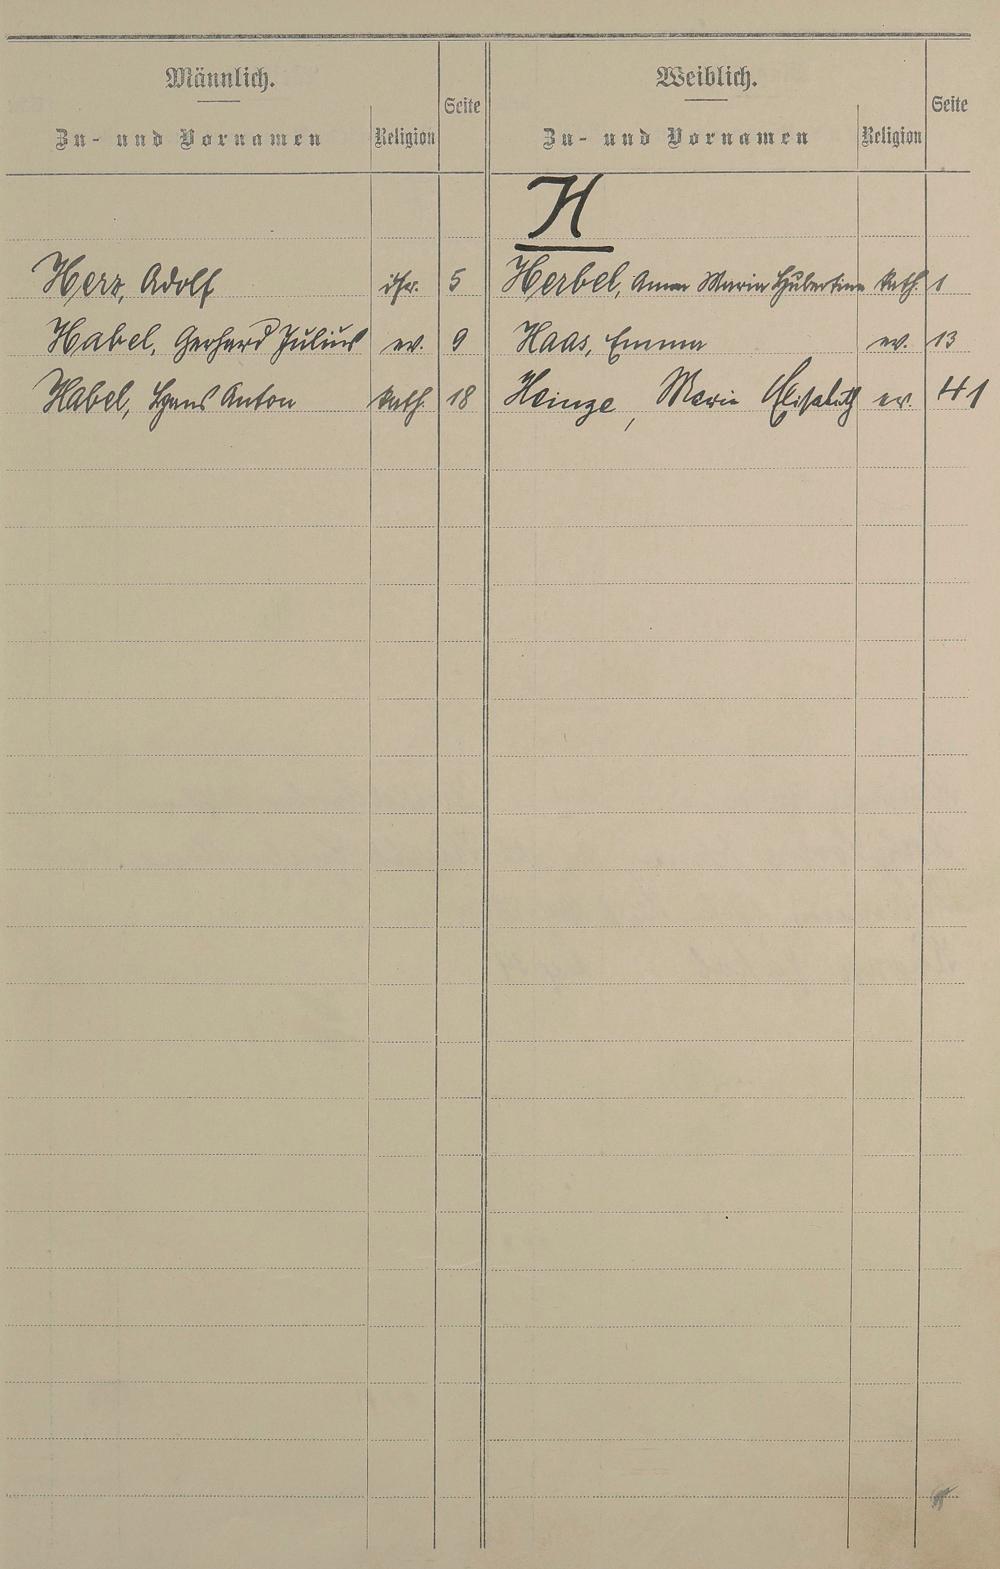 Männlich.
Zu- und Vornamen Religion Seite
Weiblich.
Zu- und Vornamen Religion Seite
H
Herz, Adolf isr. 5 Herbel, Anna Maria Hubertine kath. 1
Habel, Gerhard Julius ev. 9 Haas, Emma ev. 13
Habel, Hans Anton kath. 18 Heinze, Maria Elisabeth ev. 41